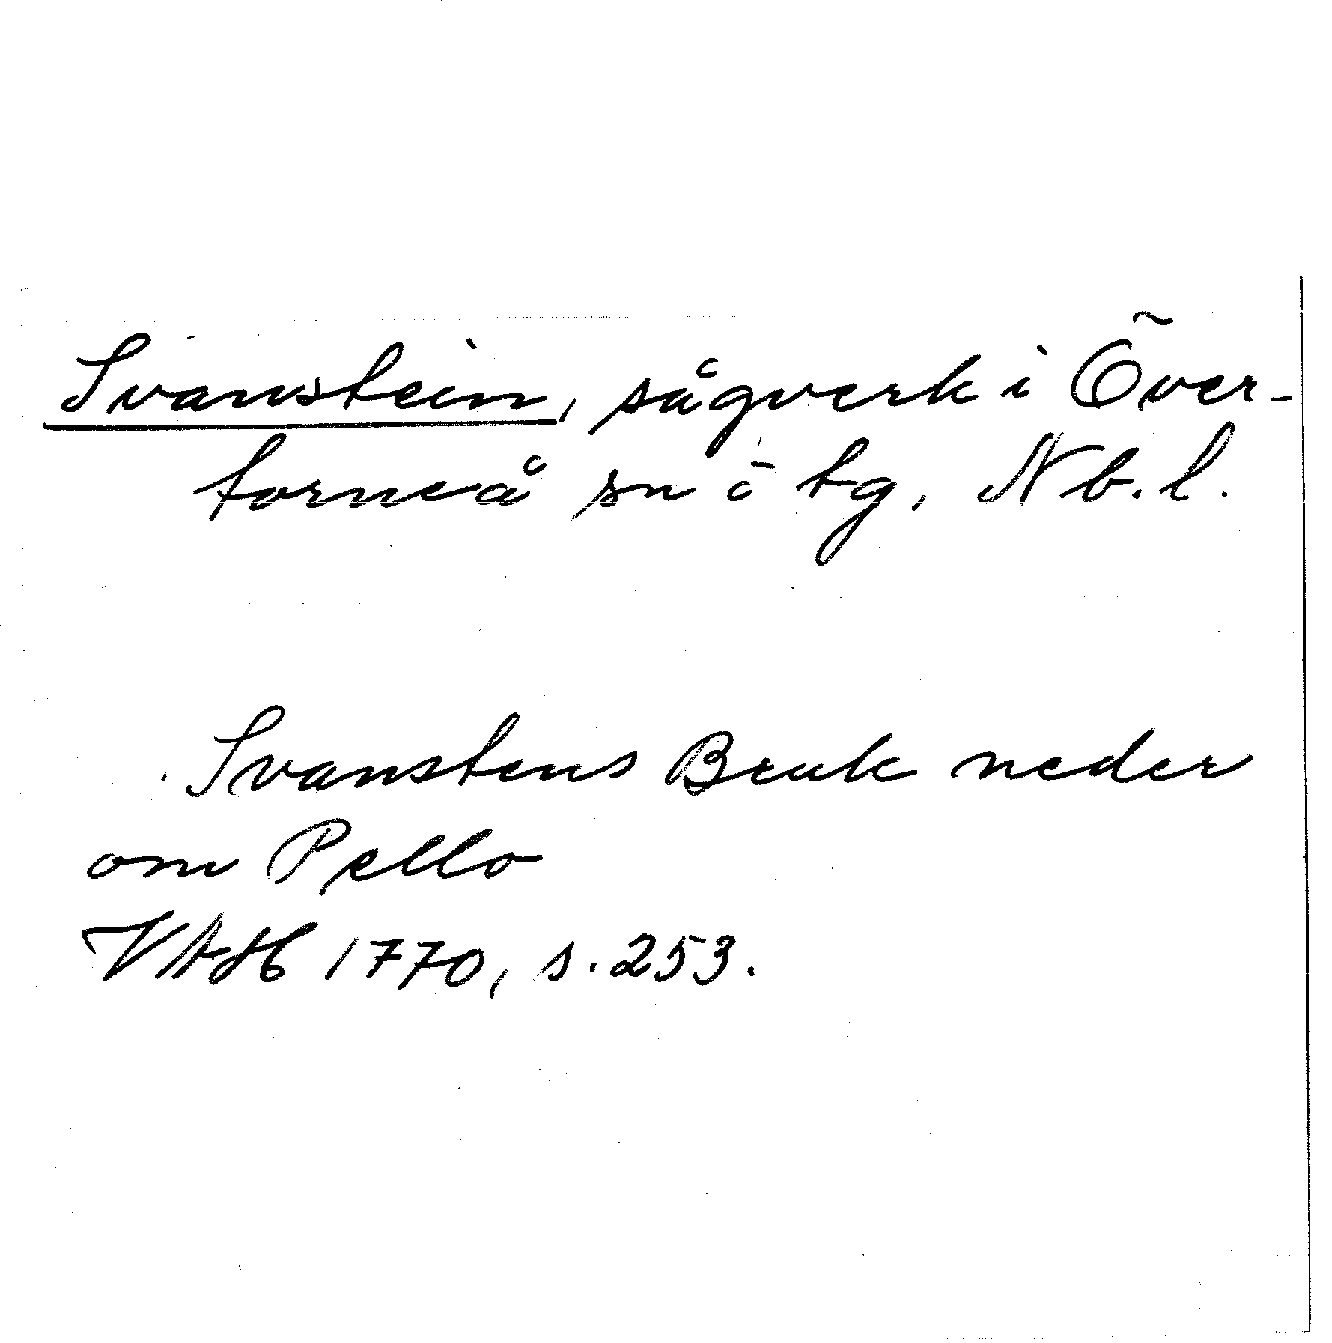 Svanstein, sågverk i Över-
torneå sn o tg, Nb. l.
Svanstens Bruk neder
om Pello
VAH 1770, s. 253.